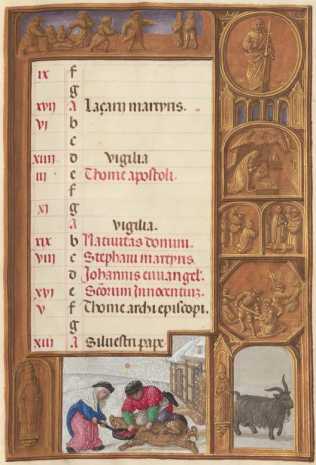 ix f
g
xvii A Laçary martyris.
vi b
c
xiiii d vigilia
iii e Thome apostoli.
f
xi g
A vigilia.
xix b Nativitas domini.
viii c Stephani martyris
d Johannis euangel'
xvi e Sctorum Innocentium
v f Thome archiepiscopi.
g
xiii A Silvestri pape